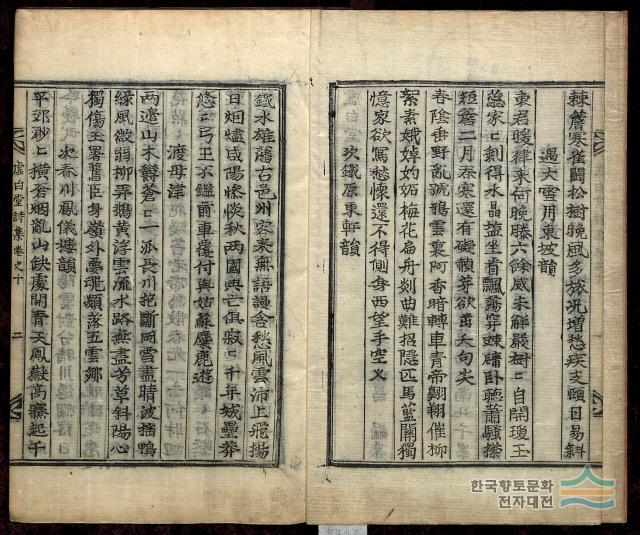 棘簷寒雀鬪松樹晩風多旅況增愁疾支頤日易斜
過大雪用東坡韻
東君暖律來何晩滕六餘威未解嚴樹〻自開瓊玉
蘂家〻剩得水晶鹽坐看飄蕩穿疎牖卧聽蕭騷
短簷二月泰寒還有礙賴芽欲茁大句尖
春陰垂野亂鴉雲裏阿香暗轉車靑帝翺翔催柳
絮素娥婥妁妬梅花扁舟剡曲難招隱匹馬藍關獨
憶家欲寫愁懷還不得側身西望手空叉
次鐵原東軒韻
鐵水雄藩古邑州客來無語謾含愁風雲沛上飛揚
日烟燼咸陽慘惔秋兩國興亡俱寂〻千年城壘莽
悠〻弓王不鑑前車覆付與姑蘇麋鹿遊
渡母津
兩邊山木欝蒼〻一派長川抱斷岡雪盡晴波搖鴨
綠風微弱柳弄鵝黃浮雲流水路無盡芳草斜陽心
獨傷玉署舊臣身嶺外夢魂頻落五雲鄉
次春川鳳儀樓韻
平郊砂〻橫蒼烟亂山缺處開靑天鳳嶽高騫起千
虛白堂詩集卷之十
二
한국향토문화
전자대전